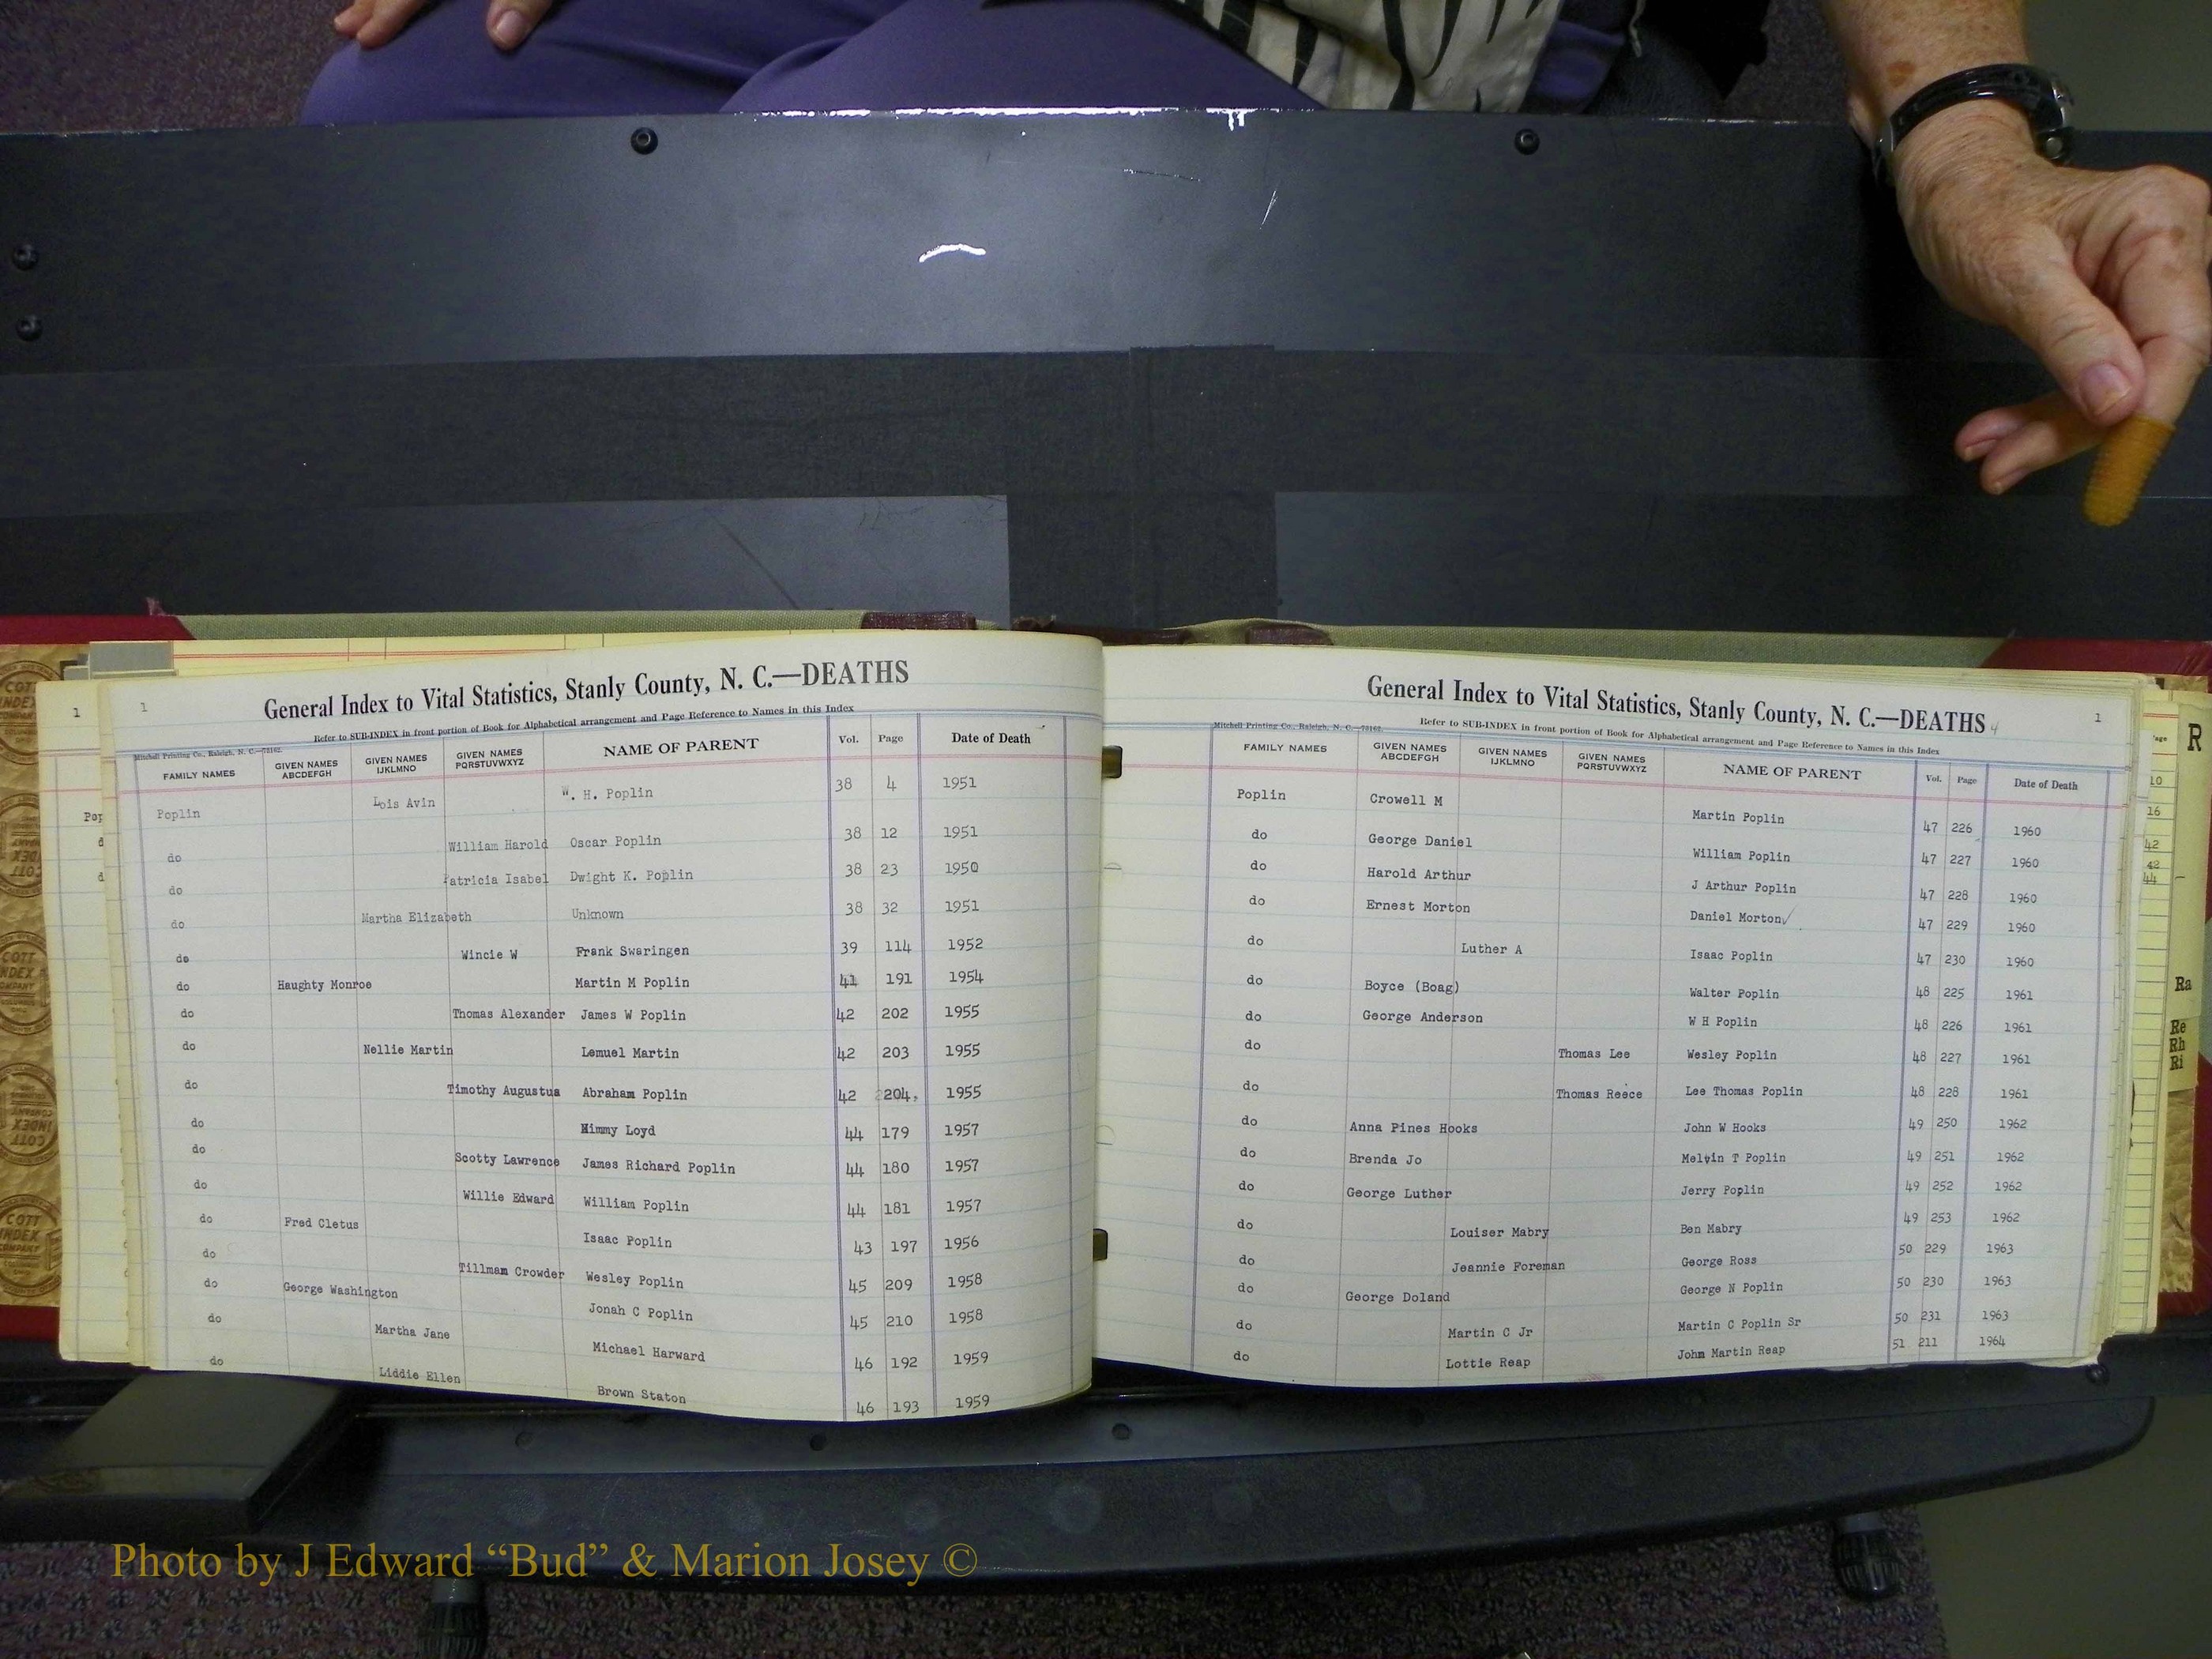 1
1
General Index to Vital Statistics, Stanly County, N. C.—DEATHS
Refer to SUB-INDEX in front portion of Book for Alphabetical arrangement and Page Reference to Names in this Index
Mitchell Printing Co., Raleigh, N. C.—75162
FAMILY NAMES GIVEN NAMES ABCDEFGH GIVEN NAMES IJKLMNO GIVEN NAMES PQRSTUVWXYZ NAME OF PARENT Vol. Page Date of Death
Poplin Lois Avin W. H. Poplin 38 4 1951
do William Harold Oscar Poplin 38 12 1951
do Patricia Isabel Dwight K. Poplin 38 23 1950
do Martha Elizabeth Unknown 38 32 1951
do Wincie W Frank Swaringen 39 114 1952
do Haughty Monroe Martin M Poplin 41 191 1954
do Thomas Alexander James W Poplin 42 202 1955
do Nellie Martin Lemuel Martin 42 203 1955
do Timothy Augustus Abraham Poplin 42 204. 1955
do Himmy Loyd 44 179 1957
do Scotty Lawrence James Richard Poplin 44 180 1957
do Willie Edward William Poplin 44 181 1957
do Fred Cletus Isaac Poplin 43 197 1956
do Tillmam Crowder Wesley Poplin 45 209 1958
do George Washington Jonah C Poplin 45 210 1958
do Martha Jane Michael Harward 46 192 1959
do Liddie Ellen Brown Staton 46 193 1959
General Index to Vital Statistics, Stanly County, N. C.—DEATHS 4
1
Refer to SUB-INDEX in front portion of Book for Alphabetical arrangement and Page Reference to Names in this Index
Mitchell Printing Co., Raleigh, N. C.—75162
FAMILY NAMES GIVEN NAMES ABCDEFGH GIVEN NAMES IJKLMNO GIVEN NAMES PQRSTUVWXYZ NAME OF PARENT Vol. Page Date of Death
Poplin Crowell M Martin Poplin 47 226 1960
do George Daniel William Poplin 47 227 1960
do Harold Arthur J Arthur Poplin 47 228 1960
do Ernest Morton Daniel Morton✓ 47 229 1960
do Luther A Isaac Poplin 47 230 1960
do Boyce (Boag) Walter Poplin 48 225 1961
do George Anderson W H Poplin 48 226 1961
do Thomas Lee Wesley Poplin 48 227 1961
do Thomas Reece Lee Thomas Poplin 48 228 1961
do Anna Pines Hooks John W Hooks 49 250 1962
do Brenda Jo Melvin T Poplin 49 251 1962
do George Luther Jerry Poplin 49 252 1962
do Louiser Mabry Ben Mabry 49 253 1962
do Jeannie Foreman George Ross 50 229 1963
do George Doland George N Poplin 50 230 1963
do Martin C Jr Martin C Poplin Sr 50 231 1963
do Lottie Reap John Martin Reap 51 211 1964
R
Ra
Re
Rh
Ri
10
16
42
42
44
COTT
INDEX
COMPANY
Photo by J Edward “Bud” & Marion Josey ©